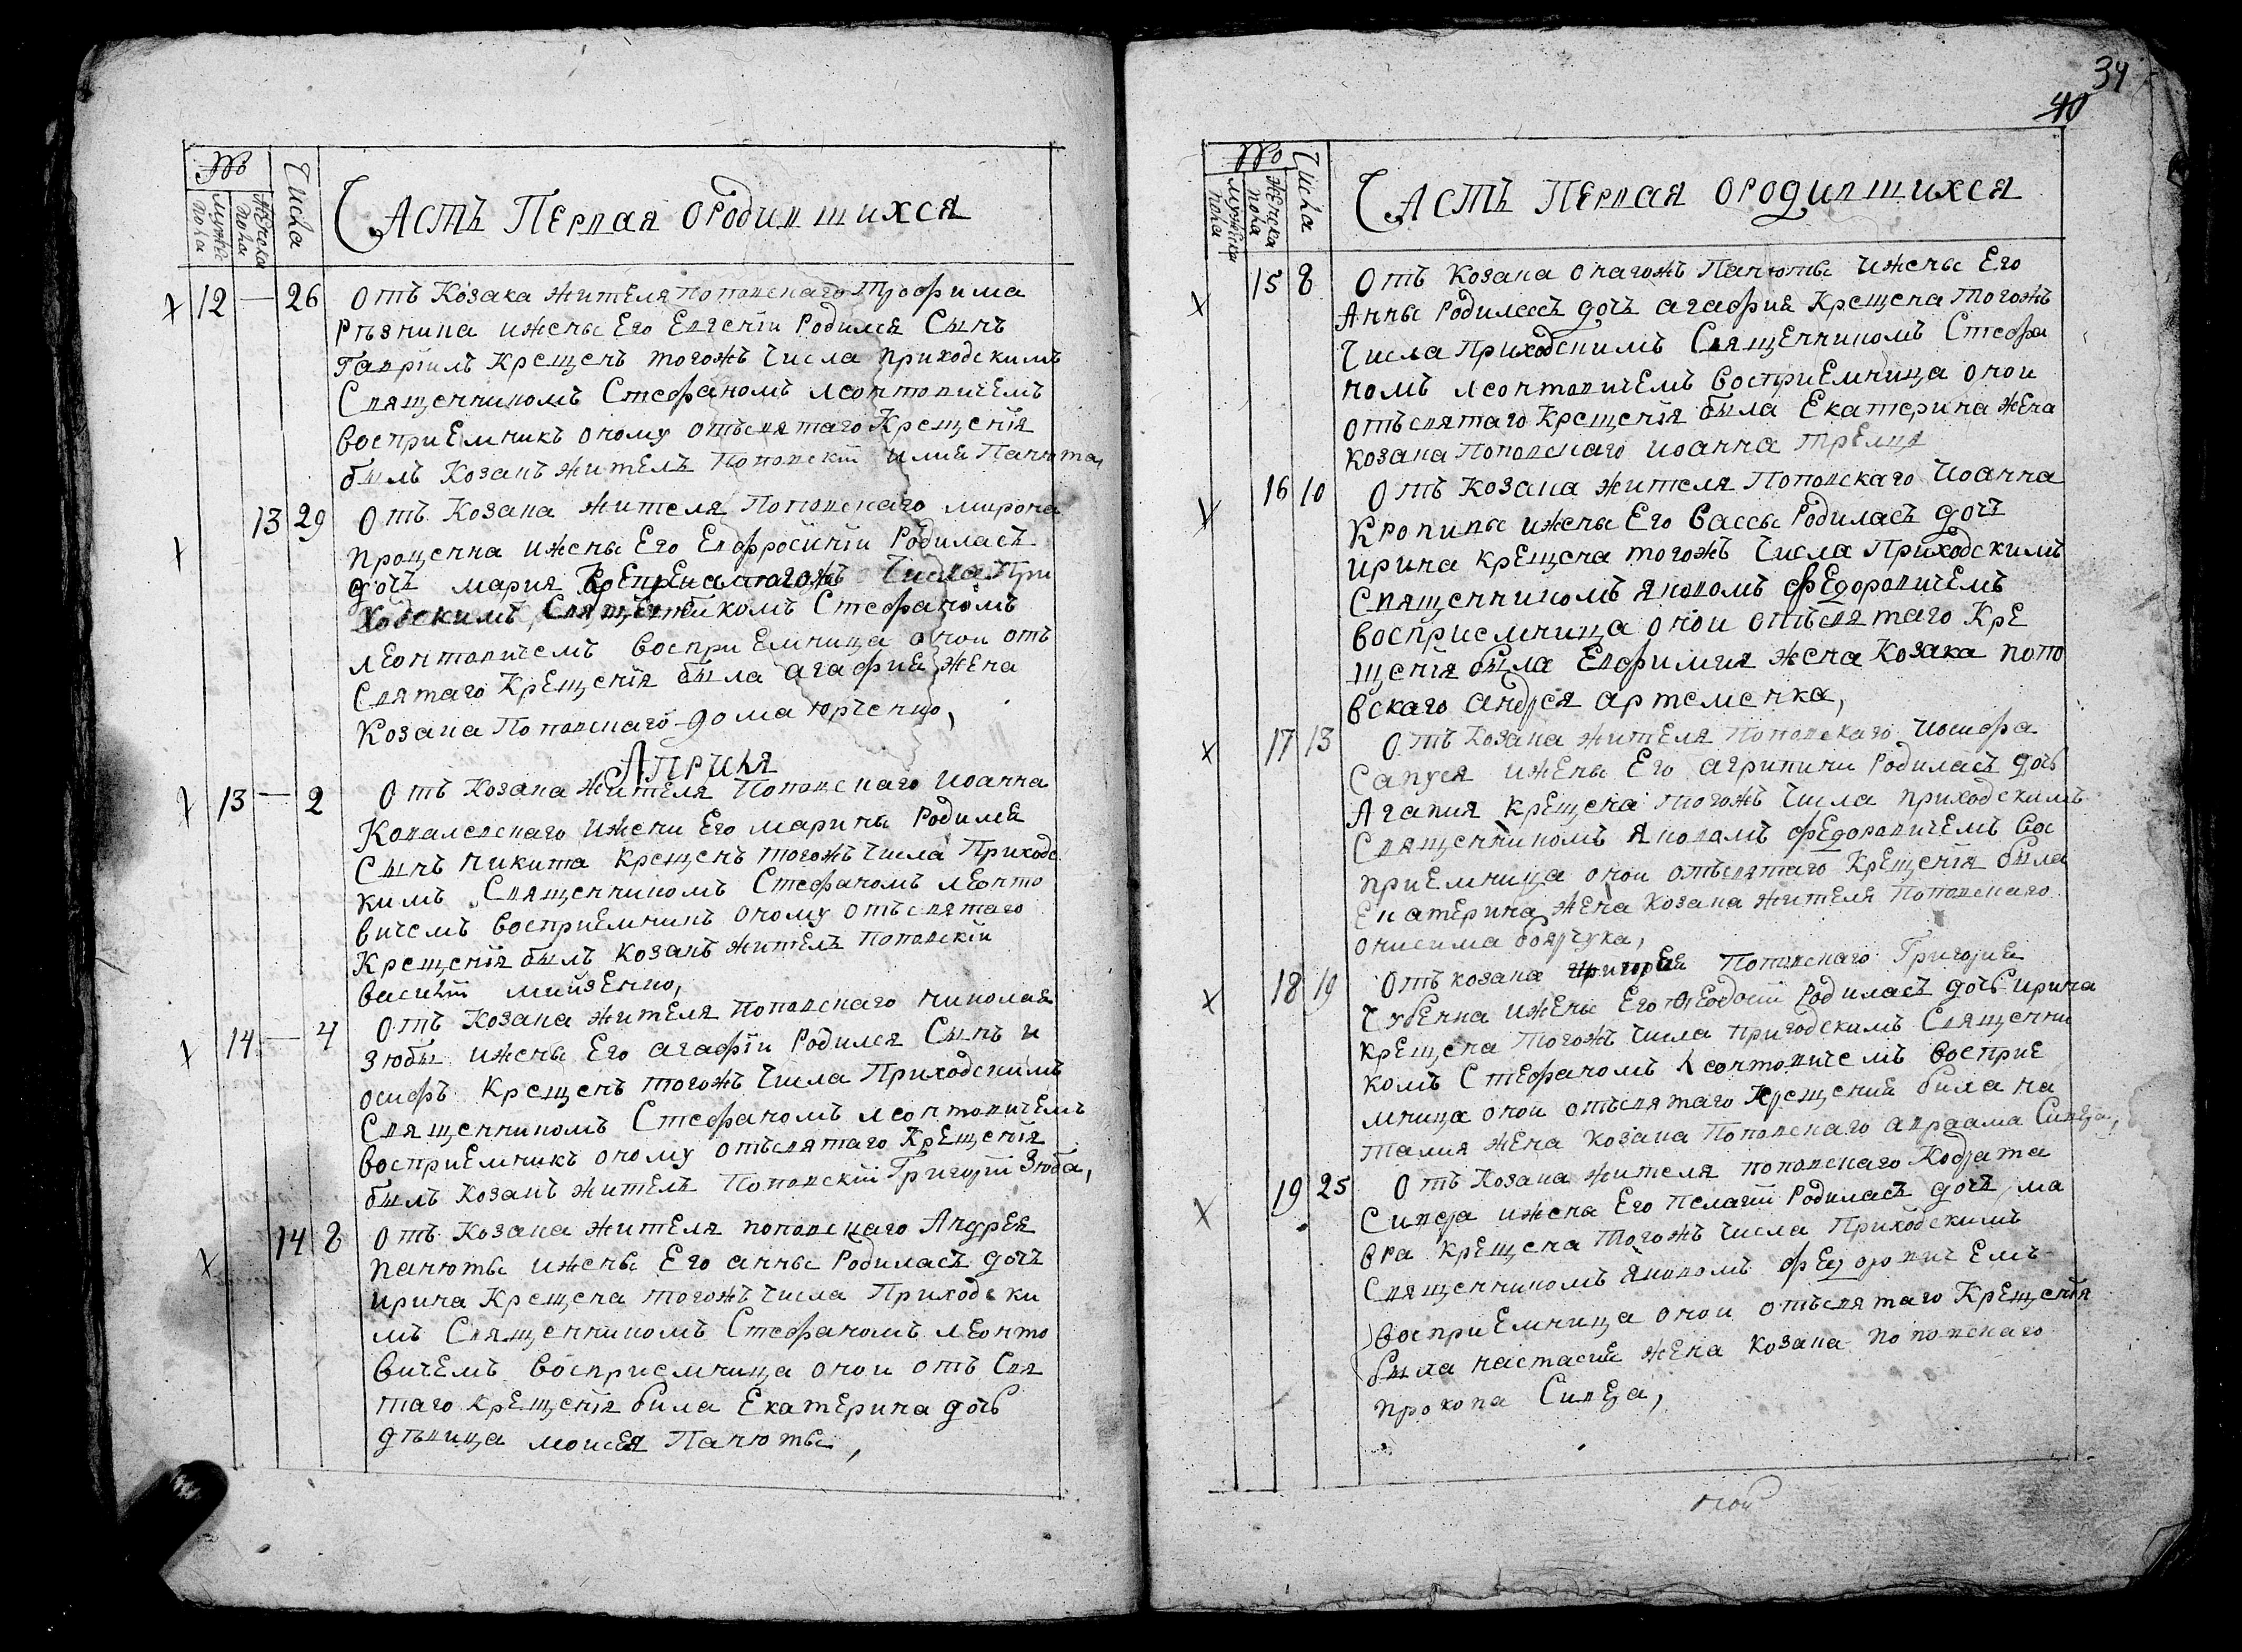 №
Мужес пола
Женска пола
Числа
Часть Первая ородившихся
12 — 26 Отъ Козака жителя поповскаго Трофима
Рѣзника ижены Его Евгеніи Родился Сынъ
Гавріилъ Крещенъ тогожъ Числа приходскимъ
Священникомъ Стефаномъ леонтовичемъ
восприемникъ оному отъсвятаго Крещенія
былъ Козакъ житель поповскій илия Панюта,
13 29 Отъ Козака жителя Поповскаго мирона
проценка ижены Его Евфросиніи Родилась
дочь мария Крещена тогожъ Числа При
ходскимъ, Священикомъ Стефаномъ
леонтовичемъ восприемница оной отъ
Святаго Крещенія была агафия жена
Козака Поповскаго дома юрченко,
Априля
13 — 2 Отъ Козака жителя Поповскаго иоанна
Ковалевскаго ижени Его марины Родился
Сынъ никита Крещенъ тогожъ Числа Приходс
кимъ Священникомъ Стефаномъ леонто
вичемъ восприемникъ оному отъсвятаго
Крещенія былъ козакъ житель поповскій
василій мийзенко,
14 — 4 Отъ Козака жителя поповскаго николая
Зюбы ижены Его агафіи Родился Сынъ и
осифъ Крещенъ тогожъ Числа Приходскимъ
Священникомъ Стефаномъ леонтовичемъ
восприемникъ оному отъсвятаго Крещенія
былъ Козакъ житель Поповскій Григорій Зюба,
14 8 Отъ Козака жителя поповскаго Андрея
панюты ижены Его анны Родилась дочь
ирина Крещена тогожъ числа Приходски
мъ Священникомъ Стефаномъ леонто
вичемъ восприемница оной отъ Свя
таго Крещенія била Екатерина дочь
дѣвица моисея Панюты,
34
40
№
Мужеска пола
Женска пола
Числа
Часть Первая ородившихся
15 8 Отъ козака онагожъ Панюты ижены Его
Анны Родилась дочь агафия Крещена тогожъ
Числа Приходскимъ Священникомъ Стефа
номъ леонтовичемъ восприемница оной
отъсвятаго Крещенія была Екатерина жена
козака Поповскаго иоанна
16 10 Отъ козака жителя Поповскаго иоанна
Кропивы ижены Его вассы Родилась дочь
ирина крещена тогожъ Числа Приходскимъ
Священникомъ яковомъ федоровичемъ
восприемница оной отъсвятаго Кре
щенія была Евфимия жена Козака попо
вскаго андрея артеменка,
17 13 Отъ Козака жителя поповскаго иосифа
Сапуся ижены Его агрипини Родилась дочь
Агапия крещена тогожъ числа приходскимъ
Священникомъ Яковомъ федоровичемъ вос
приемница оной отъсвятаго Крещенія была
Екатерина жена козака жителя поповскаго
онисима боярчука,
18 19 Отъ козака Поповскаго Григория
Чубенка ижены Его Феодосіи Родилась дочь ирина
крещена тогожъ числа пригодскимъ Священни
комъ Стефаномъ Леонтовичемъ восприе
мница оной отъсвятаго Крещений била на
талия жена козака Поповскаго авраама Сивца,
19 25 Отъ Козака жителя поповскаго Кодрата
Сивца ижена Его пелагіи Родилась дочь, ма
вра крещена тогожъ числа Приходскимъ
Священникомъ Яковомъ федоровичемъ
восприемница оной отъсвятаго Крещенія
была настасия жена козака поповскаго
прокопа Сивца,